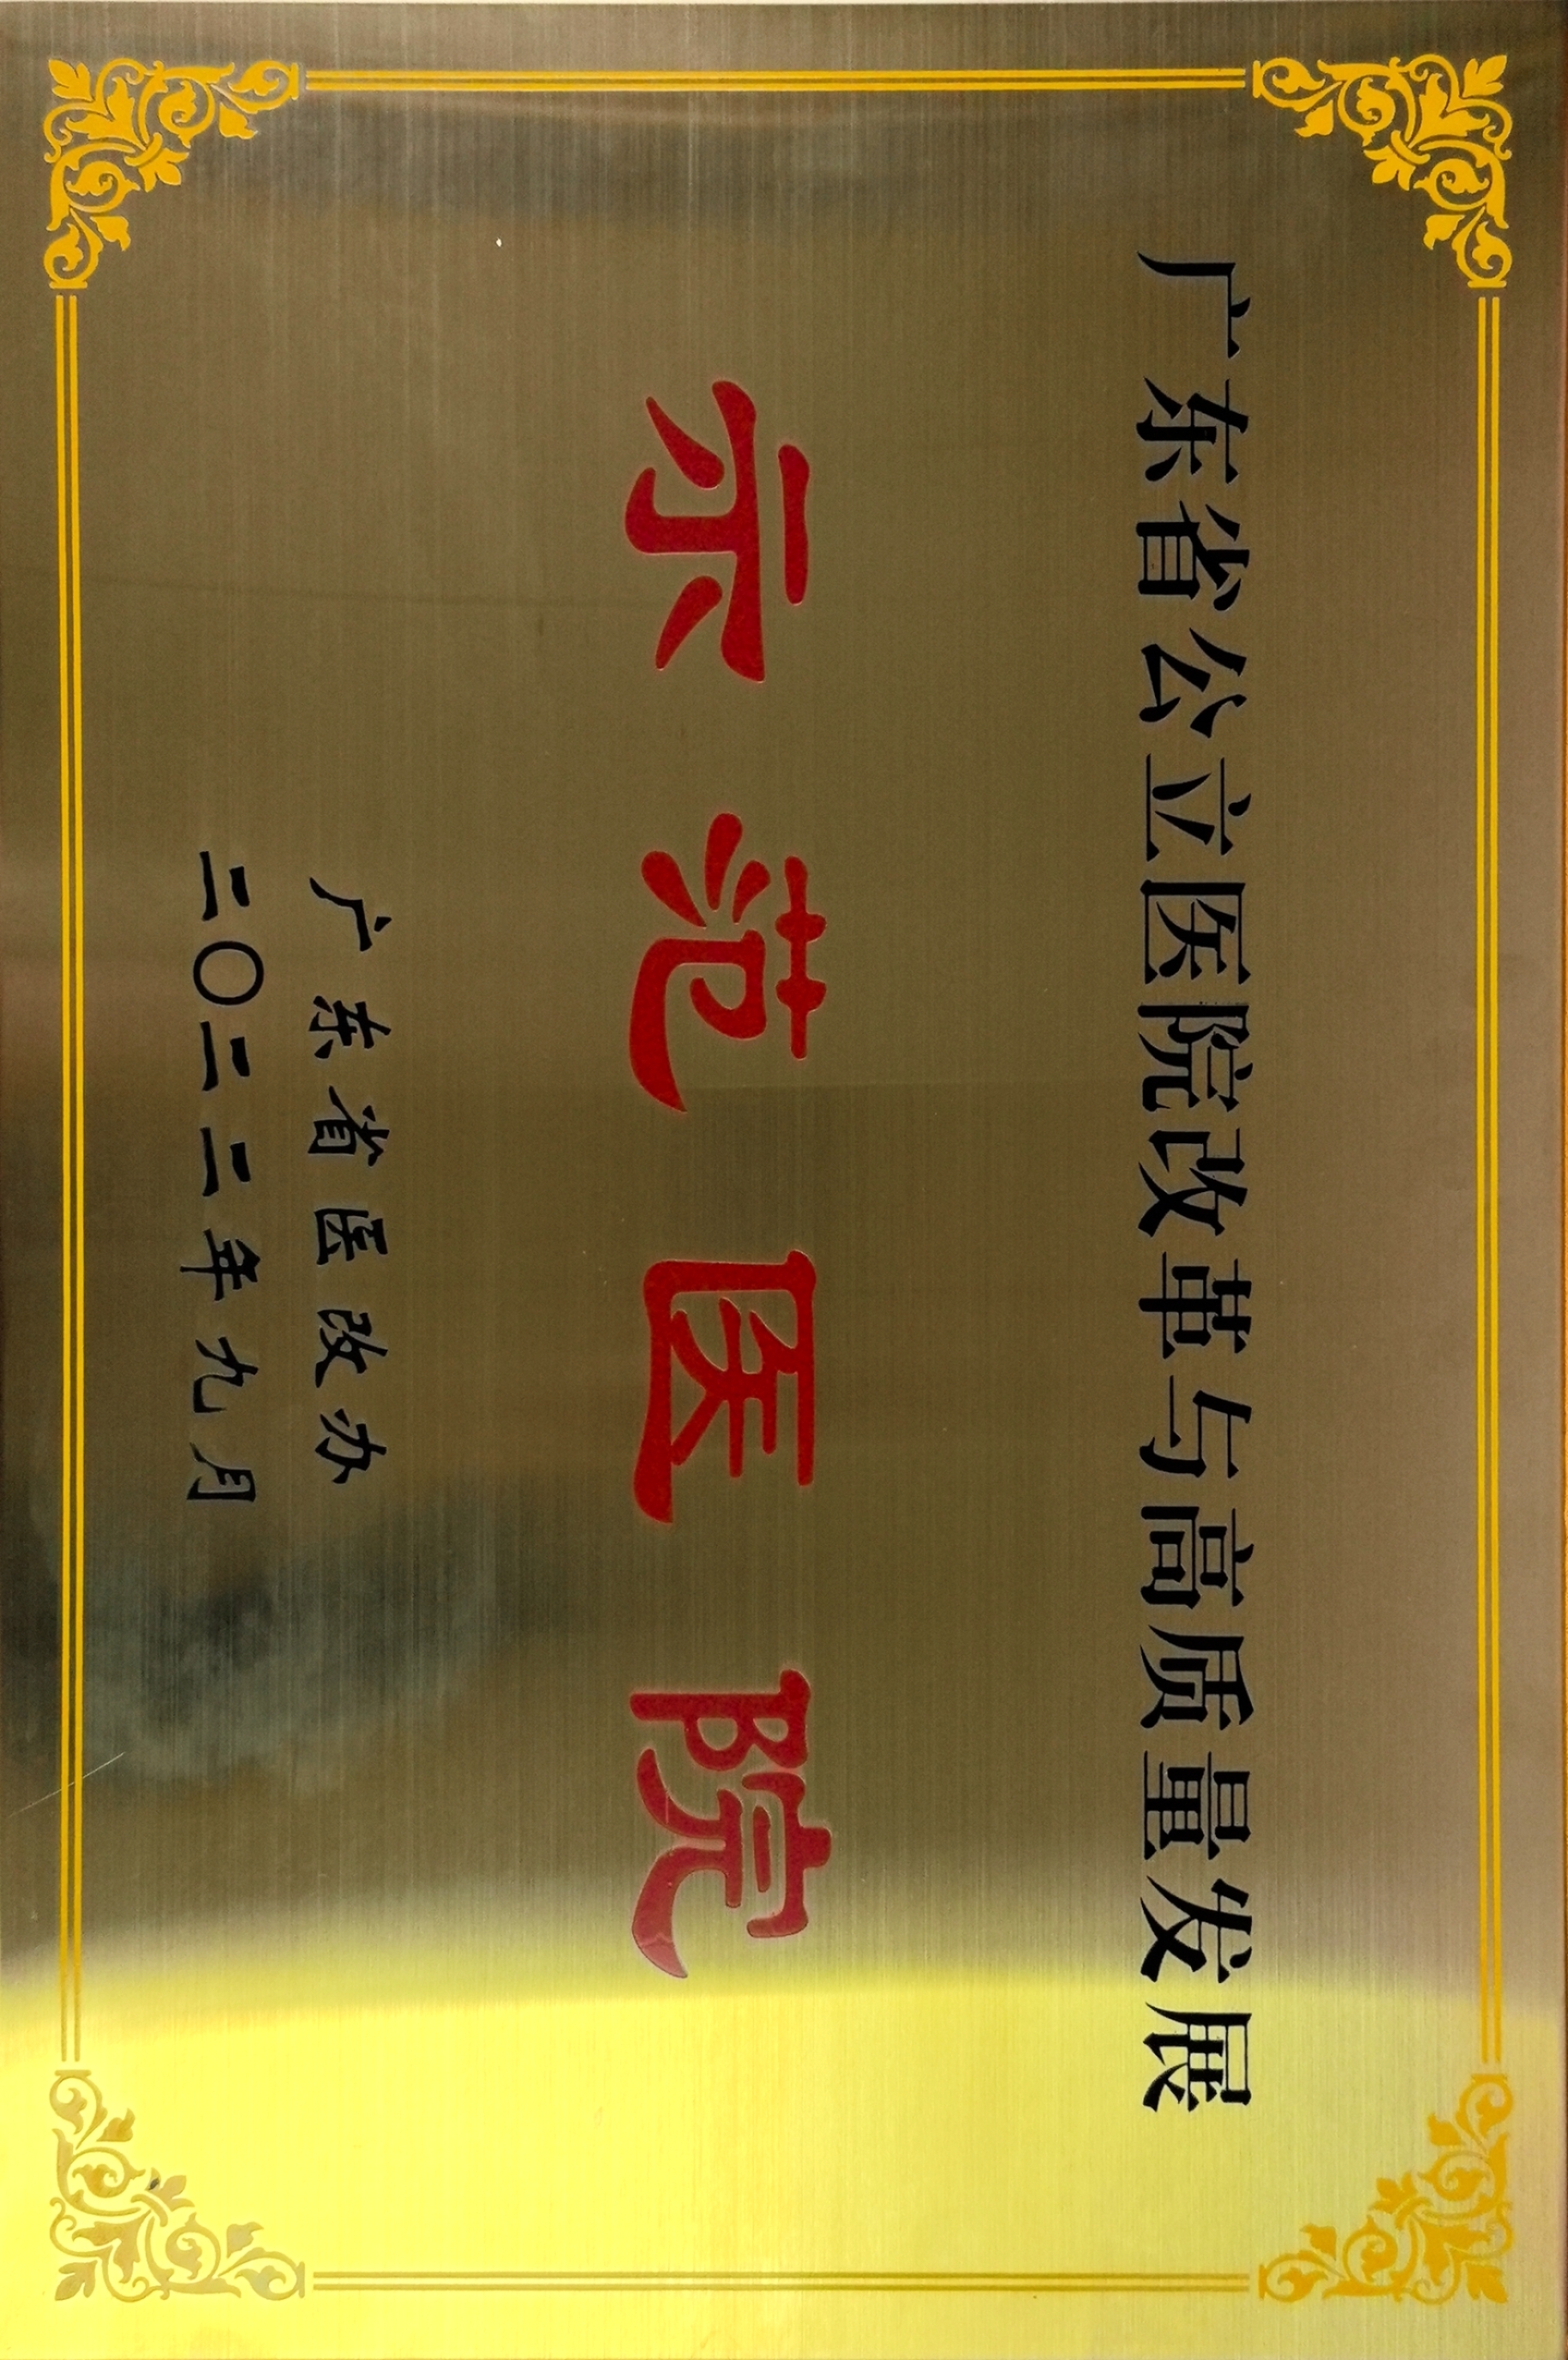 广东省公立医院改革与高质量发展
示范医院
广东省医改办
二〇二二年九月